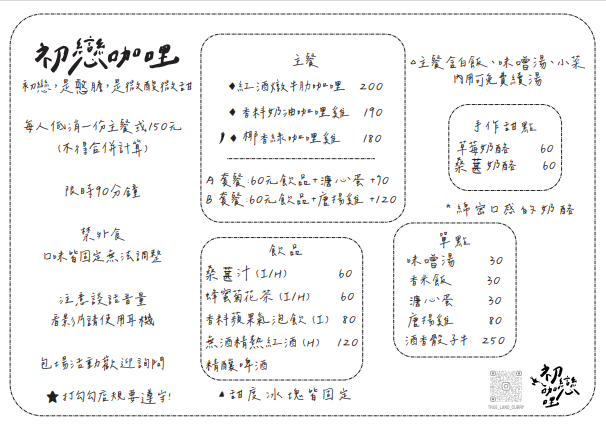 初戀咖哩
初戀，是憨膽，是微酸微甜
每人低消一份主餐或150元
(不得合併計算)
限時90分鐘
禁外食
口味皆固定無法調整
注意談話音量
看影片請使用耳機
包場活動歡迎詢問
★打勾勾店規要遵守!
主餐
◆紅酒燉牛肋咖哩 200
◆香料奶油咖哩雞 190
◆椰香綠咖哩雞 180
A套餐:60元飲品+溏心蛋+70
B套餐:60元飲品+唐揚雞+120
飲品
桑葚汁(I/H) 60
蜂蜜菊花茶(I/H) 60
香料蘋果氣泡飲(I) 80
無酒精熱紅酒(H) 120
精釀啤酒
▲甜度冰塊皆固定
△主餐含白飯、味噌湯、小菜
內用可免費續湯
手作甜點
草莓奶酪 60
桑葚奶酪 60
*綿密口感的奶酪
單點
味噌湯 30
香米飯 30
溏心蛋 30
唐揚雞 80
酒香骰子牛 250
初戀
咖哩
TRUE_LAND_CURRY